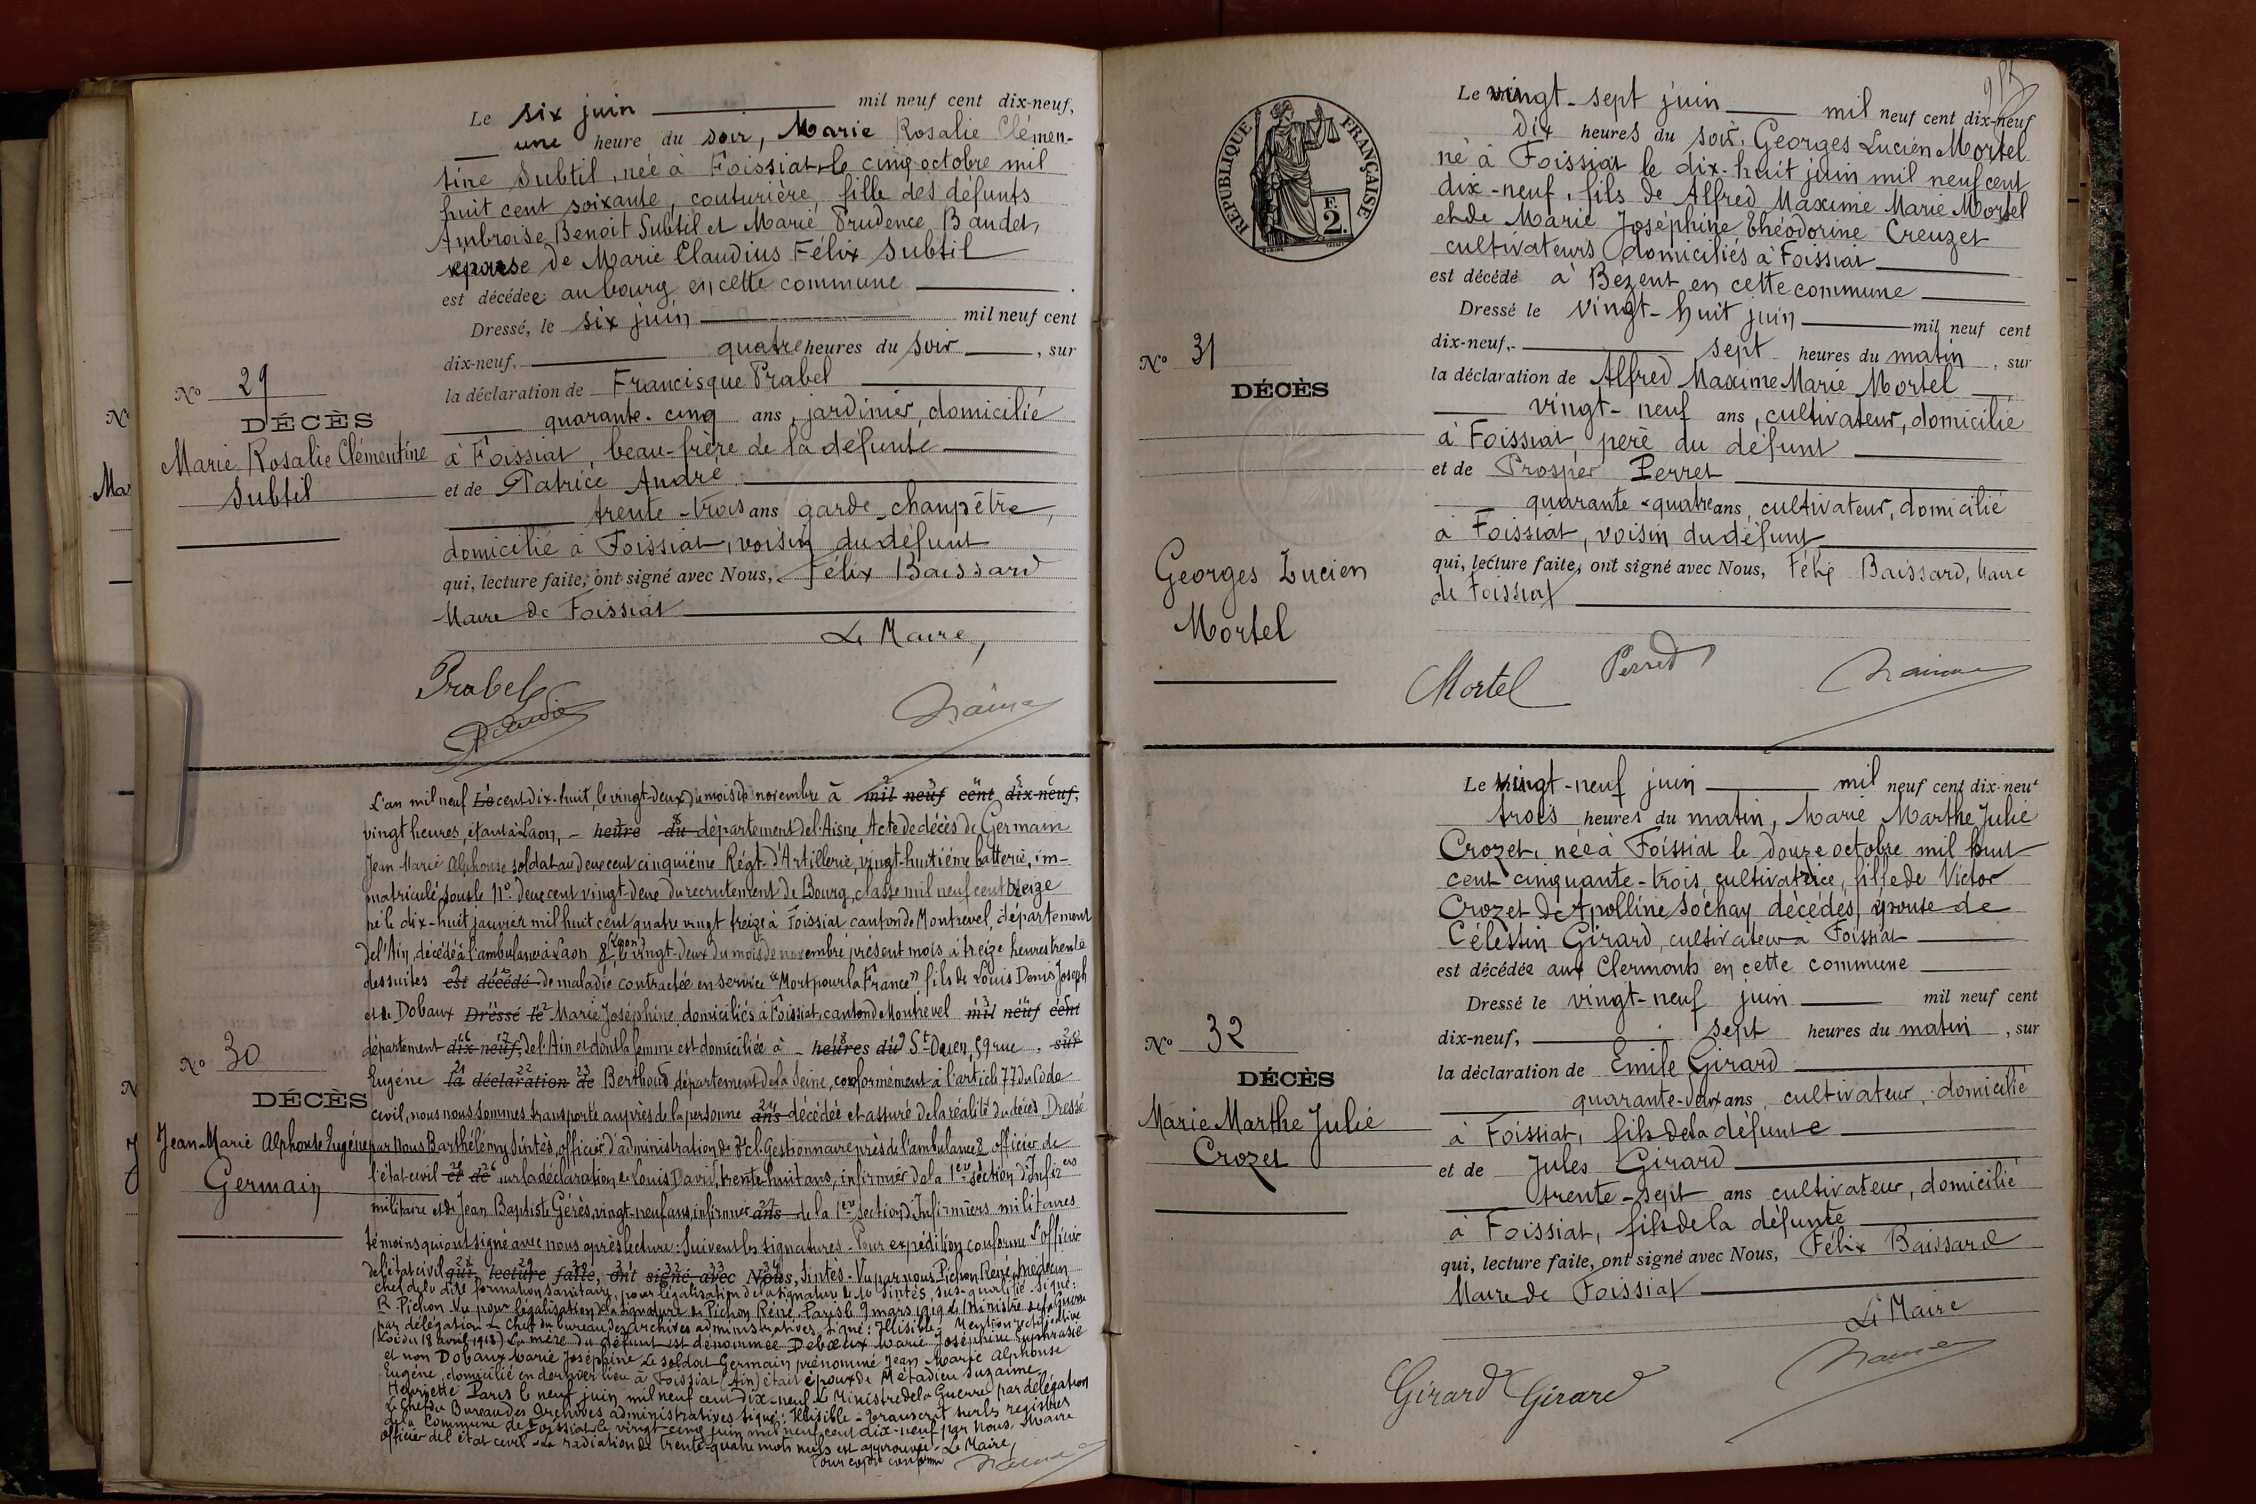 Le six juin mil neuf cent dix-neuf,
une heure du soir, Marie Rosalie Clémen-
tine Subtil, née à Foissiat, le cinq octobre mil
huit cent soixante, couturière, fille des défunts
Ambroise Benoit Subtil et Marie Prudence Baudet,
épouse de Marie Claudius Félix Subtil
est décédée au bourg en cette commune
Dressé, le six juin mil neuf cent
dix-neuf, quatre heures du soir, sur
la déclaration de Francisque Prabel
quarante-cinq ans, jardinier, domicilié
à Foissiat, beau-frère de la défunte
et de Patrice André
trente-trois ans garde-champêtre,
domicilié à Foissiat, voisin du défunt
qui, lecture faite, ont signé avec Nous, Félix Baissard
Maire de Foissiat
Le Maire,
Prabel
N° 29
DÉCÈS
Marie Rosalie Clémentine
Subtil
L'an mil neuf Le cent dix-huit, le vingt-deux du mois de novembre à mil neuf cent dix-neuf,
vingt heures, étant à Laon, - heure du département de l'Aisne Acte de décès de Germain
Jean Marie Alphonse soldat au deux cent cinquième Régt d'Artillerie, vingt-huitième batterie, im-
matriculé sous le N° deux cent vingt-deux du recrutement de Bourg, classe mil neuf cent treize
né le dix-huit janvier mil huit cent quatre vingt treize à Foissiat canton de Montrevel, département
de l'Ain, décédé à l'ambulance à Laon 8 (Laon) le vingt-deux du mois de novembre présent mois à treize heures trente
des suites est décédé de maladie contractée en service "Mort pour la France", fils de Louis Denis Joseph
et de Dobaux Dressé le Marie Joséphine, domiciliés à Foissiat, canton de Montrevel mil neuf cent
département dix-neuf, de l'Ain et dont la femme est domiciliée à - heures du St Ouen, 59 rue, sur
Eugène la déclaration de Berthoud, département de la Seine, conformément à l'article 77 du Code
civil, nous nous sommes transporté auprès de la personne ans décédée et assuré de la réalité du décès. Dressé
par Nous Barthélémy Sintès, officier d'administration de 3e cl. Gestionnaire près de l'ambulance 8 officier de
l'état-civil et de sur la déclaration de Louis David, trente-huit ans, infirmier de la 1ere section d'Infirers
militaire et de Jean Baptiste Gérès, vingt-neuf ans, infirmier ans de la 1ere section d'Infirmiers militaires
témoins qui ont signé avec nous après lecture : Suivent les signatures - Pour expédition conforme l'officier
de l'état civil qui, lecture faite, ont signé avec Nous, Sintes. - Vu par nous Pichon René, médecin
chef de la dite formation sanitaire, pour légalisation de la signature de Mr Sintès, sus-qualifié. Signé :
R. Pichon. Vu pour légalisation de la signature de Pichon René. Paris le 9 mars 1919 le Ministre de la Guerre
par délégation Le Chef du bureau des archives administratives Signé : Illisible. - Mention rectificative
(Loi du 18 avril 1918) La mère du défunt est dénommée Debœux Marie Joséphine Euphrasie
et non Dobaux Marie Joséphine Le soldat Germain prénommé Jean Marie Alphonse
Eugène, domicilié en dernier lieu à Foissiat (Ain) était époux de Métadieu Suzanne
Henriette Paris le neuf juin mil neuf cent dix-neuf Le Ministre de la Guerre par délégation
Le Chef du Bureau des Archives administratives signé : Illisible - Transcrit sur les registres
de la Commune de Foissiat le vingt-cinq juin mil neuf cent dix-neuf par Nous, Maire
officier de l'état civil - La radiation de trente-quatre mots nuls est approuvée - Le Maire,
Pour copie conforme
N° 30
DÉCÈS
Jean-Marie Alphonse Eugène
Germain
RÉPUBLIQUE FRANÇAISE
F.
2.
Le vingt-sept juin mil neuf cent dix-neuf
Dix heures du soir, Georges Lucien Mortel
né à Foissiat le dix-huit juin mil neuf cent
dix-neuf, fils de Alfred Maxime Marie Mortel
et de Marie Joséphine Théodorine Creuzet
cultivateurs domiciliés à Foissiat
est décédé à Bezent en cette commune
Dressé le vingt-huit juin mil neuf cent
dix-neuf, sept heures du matin, sur
la déclaration de Alfred Maxime Marie Mortel
vingt-neuf ans, cultivateur, domicilié
à Foissiat, père du défunt
et de Prosper Perret
quarante-quatre ans, cultivateur, domicilié
à Foissiat, voisin du défunt
qui, lecture faite, ont signé avec Nous, Félix Baissard, Maire
de Foissiat
Mortel Perret
N° 31
DÉCÈS
Georges Lucien
Mortel
Le vingt-neuf juin mil neuf cent dix-neuf
trois heures du matin, Marie Marthe Julie
Crozet, née à Foissiat le douze octobre mil huit
cent cinquante-trois, cultivatrice, fille de Victor
Crozet & d'Apolline Sochay décédés, épouse de
Célestin Girard, cultivateur à Foissiat
est décédée aux Clermonts en cette commune
Dressé le vingt-neuf juin mil neuf cent
dix-neuf, sept heures du matin, sur
la déclaration de Emile Girard
quarante-deux ans, cultivateur, domicilié
à Foissiat, fils de la défunte
et de Jules Girard
trente-sept ans cultivateur, domicilié
à Foissiat, fils de la défunte
qui, lecture faite, ont signé avec Nous, Félix Baissard
Maire de Foissiat
Le Maire
Girard Girard
N° 32
DÉCÈS
Marie Marthe Julie
Crozet